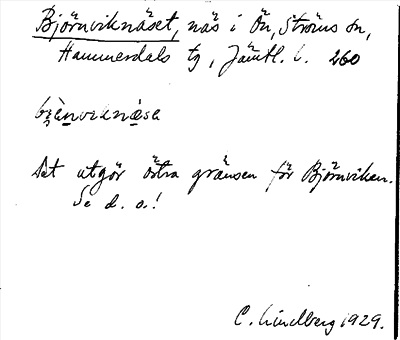 Björnviknäset, näs i Ön, Ströms sn,
Hammerdals tg, Jämtl. l. 260
bjὲnviknὲse
Det utgör östra gränsen för Björnviken.
Se d. o.!
C. Lindberg 1929.